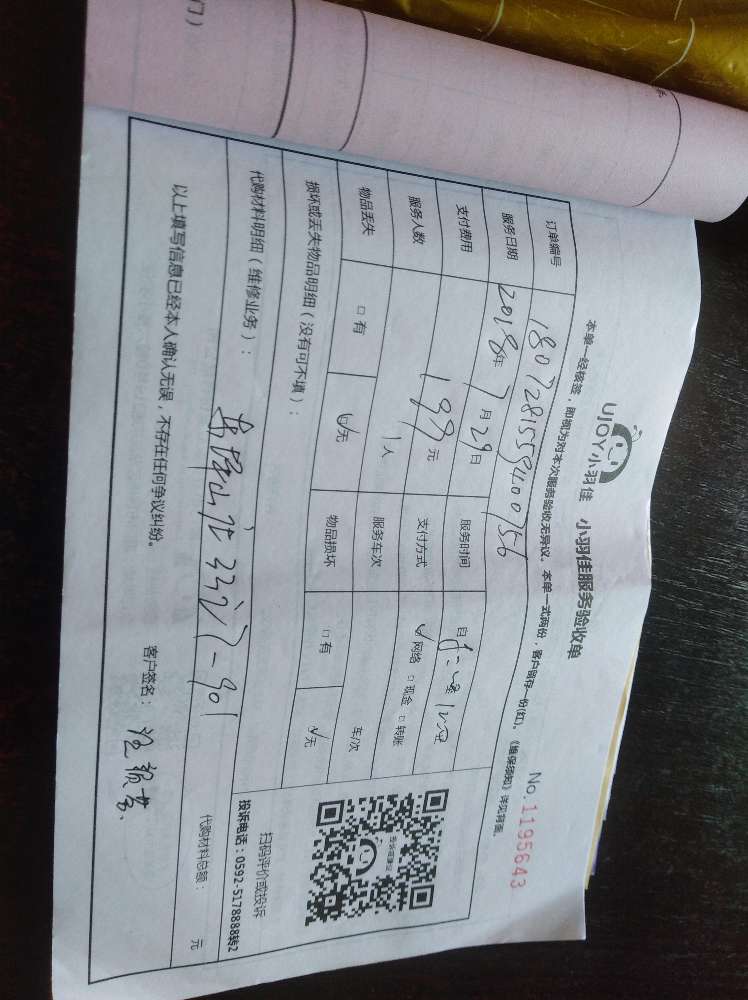 UJOY小羽佳 小羽佳服务验收单
No.1195643
本单一经核签,即视为对本次服务验收无异议。本单一式两份,客户留存一份(红)。《维保须知》详见背面。
订单编号 1807281559400756
服务日期 2018年7月29日 服务时间 自
支付费用 199元 支付方式 ☑网络 □现金 □转账
服务人数 1人 服务车次 车次
物品丢失 □有 ☑无 物品损坏 □有 ☑无
损坏或丢失物品明细(没有可不填):
扫码评价或投诉
投诉电话:0592-5178888转2
代购材料明细(维修业务): 33 -901
代购材料总额: 元
以上填写信息已经本人确认无误,不存在任何争议纠纷。 客户签名: